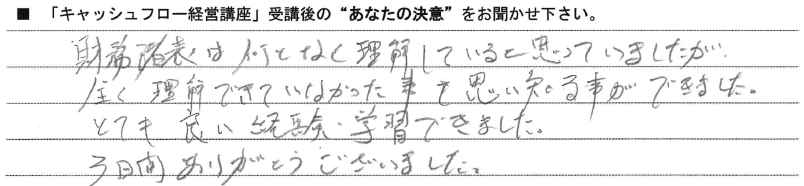 ■ 「キャッシュフロー経営講座」受講後の“あなたの決意”をお聞かせ下さい。
財務諸表は何となく理解していると思っていましたが、
全く理解できていなかった事を思い知る事ができました。
とても良い経験・学習できました。
3日間ありがとうございました。